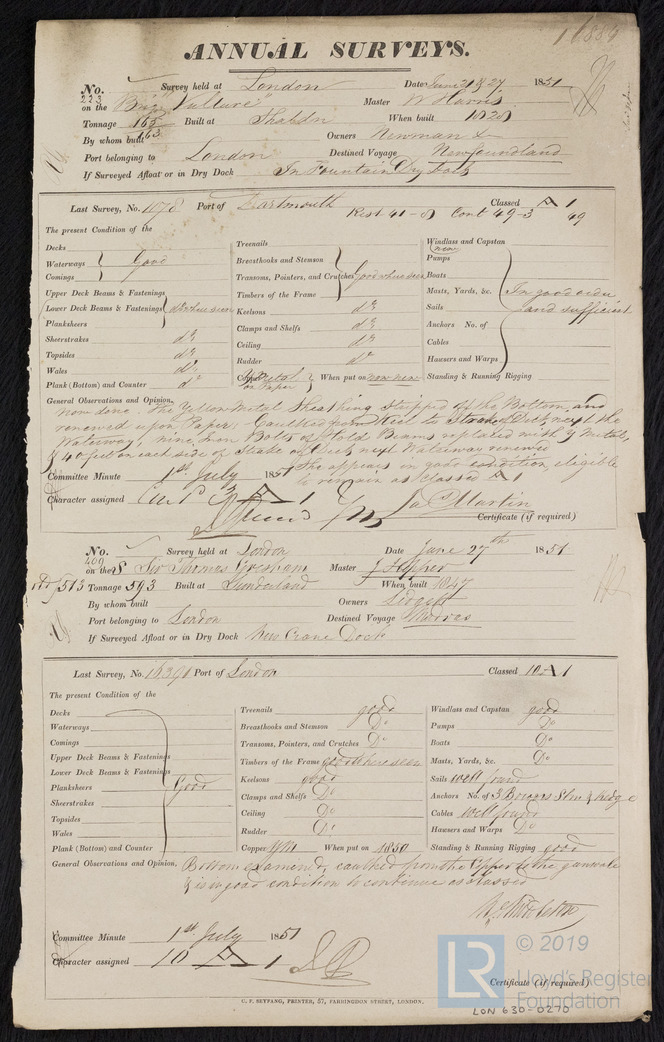 ANNUAL SURVEYS.
No. 223 Survey held at London Date June 21 & 27 1851
on the Brig Vulture Master W Harris
Tonnage 165 163 Built at Shaldn When built 1828
By whom built Owners Newman &
Port belonging to London Destined Voyage Newfoundland
If Surveyed Afloat or in Dry Dock In Fountain Dry Dock
Last Survey, No. 1078 Port of Dartmouth Classed A 1
Rest 41-8 Cont 49-3 49
The present Condition of the
Decks
Waterways Good
Comings
Upper Deck Beams & Fastenings
Lower Deck Beams & Fastenings do where seen
Planksheers
Sheerstrakes do
Topsides do
Wales do
Plank (Bottom) and Counter do
Treenails
Breasthooks and Stemson
Transoms, Pointers, and Crutches Good where seen
Timbers of the Frame
Keelsons do
Clamps and Shelfs do
Ceiling do
Rudder do
Y Metal on Paper When put on now new
Windlass and Capstan
(new)
Pumps
Boats
Masts, Yards, &c. In good order
Sails and sufficient
Anchors No. of
Cables
Hawsers and Warps
Standing & Running Rigging
General Observations and Opinion,
Now done. The Yellow Metal Sheathing stripped off the Bottom, and
renewed upon Paper; Caulked from Keel to Strake of Deck next the
Waterway, nine Iron Bolts of Hold Beams replaced with Y Metal,
& 40 feet on each side of Strake of Deck next Waterway renewed
She appears in good condition, eligible
to remain as Classed A 1
Committee Minute 1st July 1851
Character assigned A 1
Ja Martin
Certificate (if required)
No. 409 Survey held at London Date June 27th 1851
on the S Sir Thomas Gresham Master J Hopper
513 Tonnage 593 Built at Sunderland When built 1847
By whom built Owners Lidgett
Port belonging to London Destined Voyage Madras
If Surveyed Afloat or in Dry Dock New Crane Dock
Last Survey, No. 16391 Port of London Classed 10 A 1
The present Condition of the
Decks
Waterways
Comings
Upper Deck Beams & Fastenings
Lower Deck Beams & Fastenings
Planksheers Good
Sheerstrakes
Topsides
Wales
Plank (Bottom) and Counter
Treenails good
Breasthooks and Stemson Do
Transoms, Pointers, and Crutches Do
Timbers of the Frame good where seen
Keelsons good
Clamps and Shelfs Do
Ceiling Do
Rudder Do
Copper YM When put on 1850
Windlass and Capstan good
Pumps Do
Boats Do
Masts, Yards, &c. Do
Sails well found
Anchors No. of 3 Bowers Stm & kedge
Cables well found
Hawsers and Warps Do
Standing & Running Rigging good
General Observations and Opinion, Bottom examend, caulked from the Upper to the gunwale
& is in good condition to continue as classed
Committee Minute 1st July 1851
Character assigned 10 A 1
Certificate (if required)
C. F. SEYFANG, PRINTER, 57, FARRINGDON STREET, LONDON.
LR © 2019
Lloyd's Register
Foundation
LON 630-0270